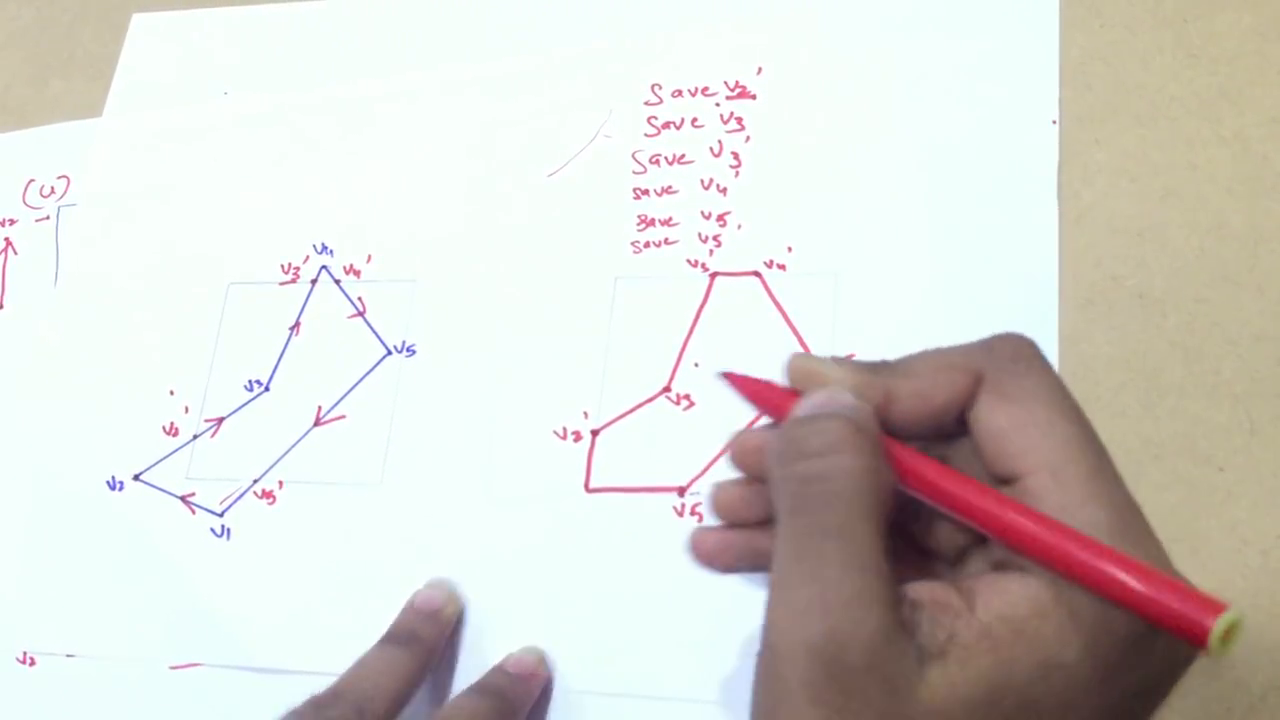 Save v2'
Save v3
Save v3'
save v4'
save v5
save v5'
(u)
v2
v4
v3'
v4'
v5
v3
v2'
v2
v5'
v1
v3'
v4'
v3
v2'
v5
v2